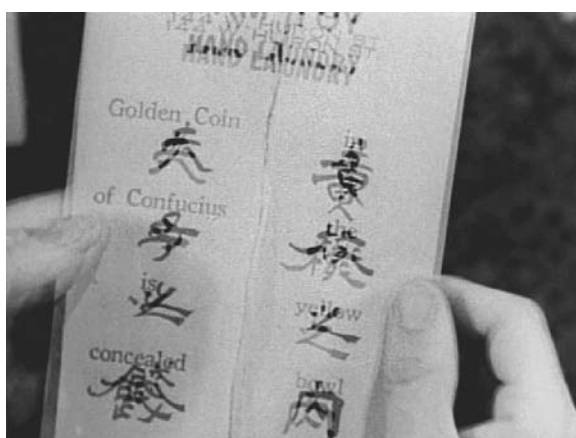 HAND LAUNDRY
Golden Coin
夫
of Confucius
子
is
之
concealed
in
the
yellow
之
bowl
内